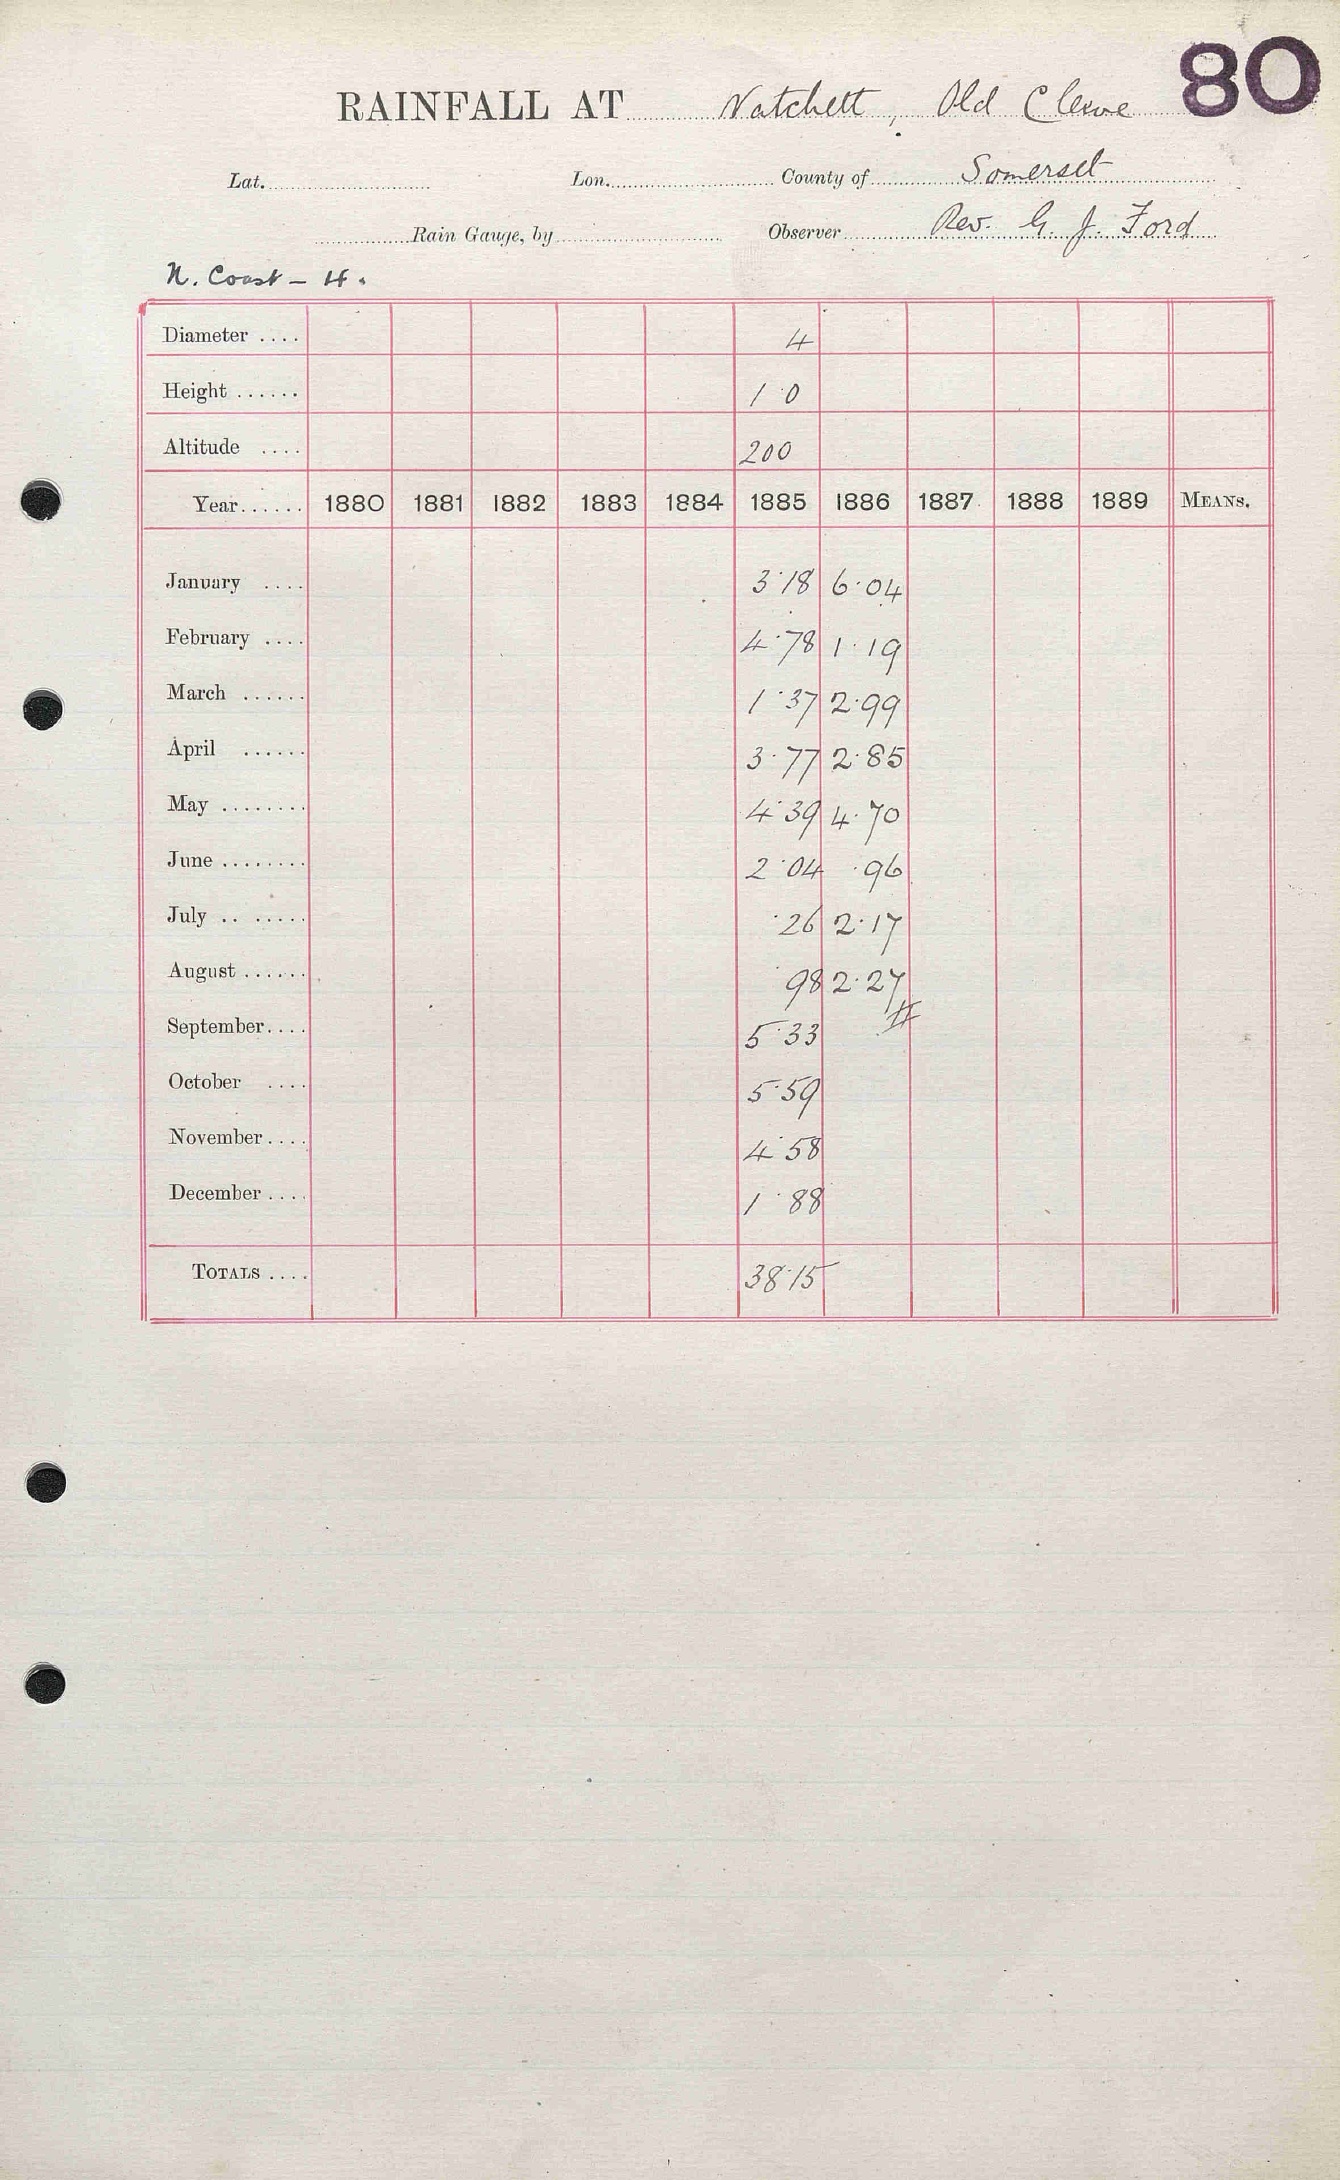 80
RAINFALL AT Watchett, Old Cleeve
Lat. Lon. County of Somerset
Rain Gauge, by Observer Rev. G. J. Ford
N. Coast - H.
Diameter .... 4
Height ...... 1 0
Altitude .... 200
Year...... 1880 1881 1882 1883 1884 1885 1886 1887 1888 1889 MEANS.
January .... 3·18 6·04
February .... 4·78 1·19
March ...... 1·37 2·99
April ...... 3·77 2·85
May ........ 4·39 4·70
June ........ 2·04 ·96
July .. ..... ·26 2·17
August ...... ·98 2·27
September.... 5·33
October .... 5·59
November.... 4·58
December.... 1·88
TOTALS .... 38·15